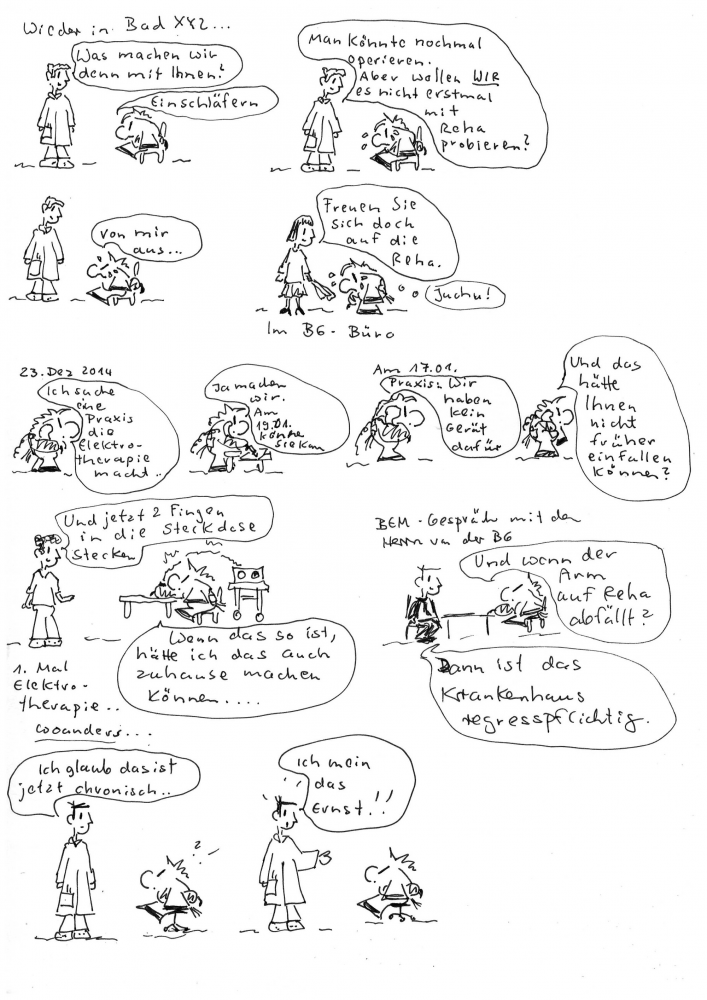 Wieder in Bad XYZ...
Was machen wir
denn mit Ihnen?
Einschläfern
Man könnte nochmal
operieren.
Aber wollen WIR
es nicht erstmal
mit
Reha
probieren?
Von mir
aus...
Freuen Sie
sich doch
auf die
Reha.
Juchu!
Im BG-Büro
23. Dez 2014
Ich suche
eine
Praxis
die
Elektro-
therapie
macht..
Ja machen
wir.
Am
19.01.
können
Sie kommen
Am 17.01.
Praxis: Wir
haben
kein
Gerät
dafür
Und das
hätte
Ihnen
nicht
früher
einfallen
können?
Und jetzt 2 Finger
in die Steckdose
stecken
Wenn das so ist,
hätte ich das auch
zuhause machen
können....
1. Mal
Elektro-
therapie..
woanders...
BEM-Gespräch mit dem
Herrn von der BG
Und wenn der
Arm
auf Reha
abfällt?
Dann ist das
Krankenhaus
regresspflichtig.
Ich glaub das ist
jetzt chronisch..
?
Ich mein
das
Ernst!!